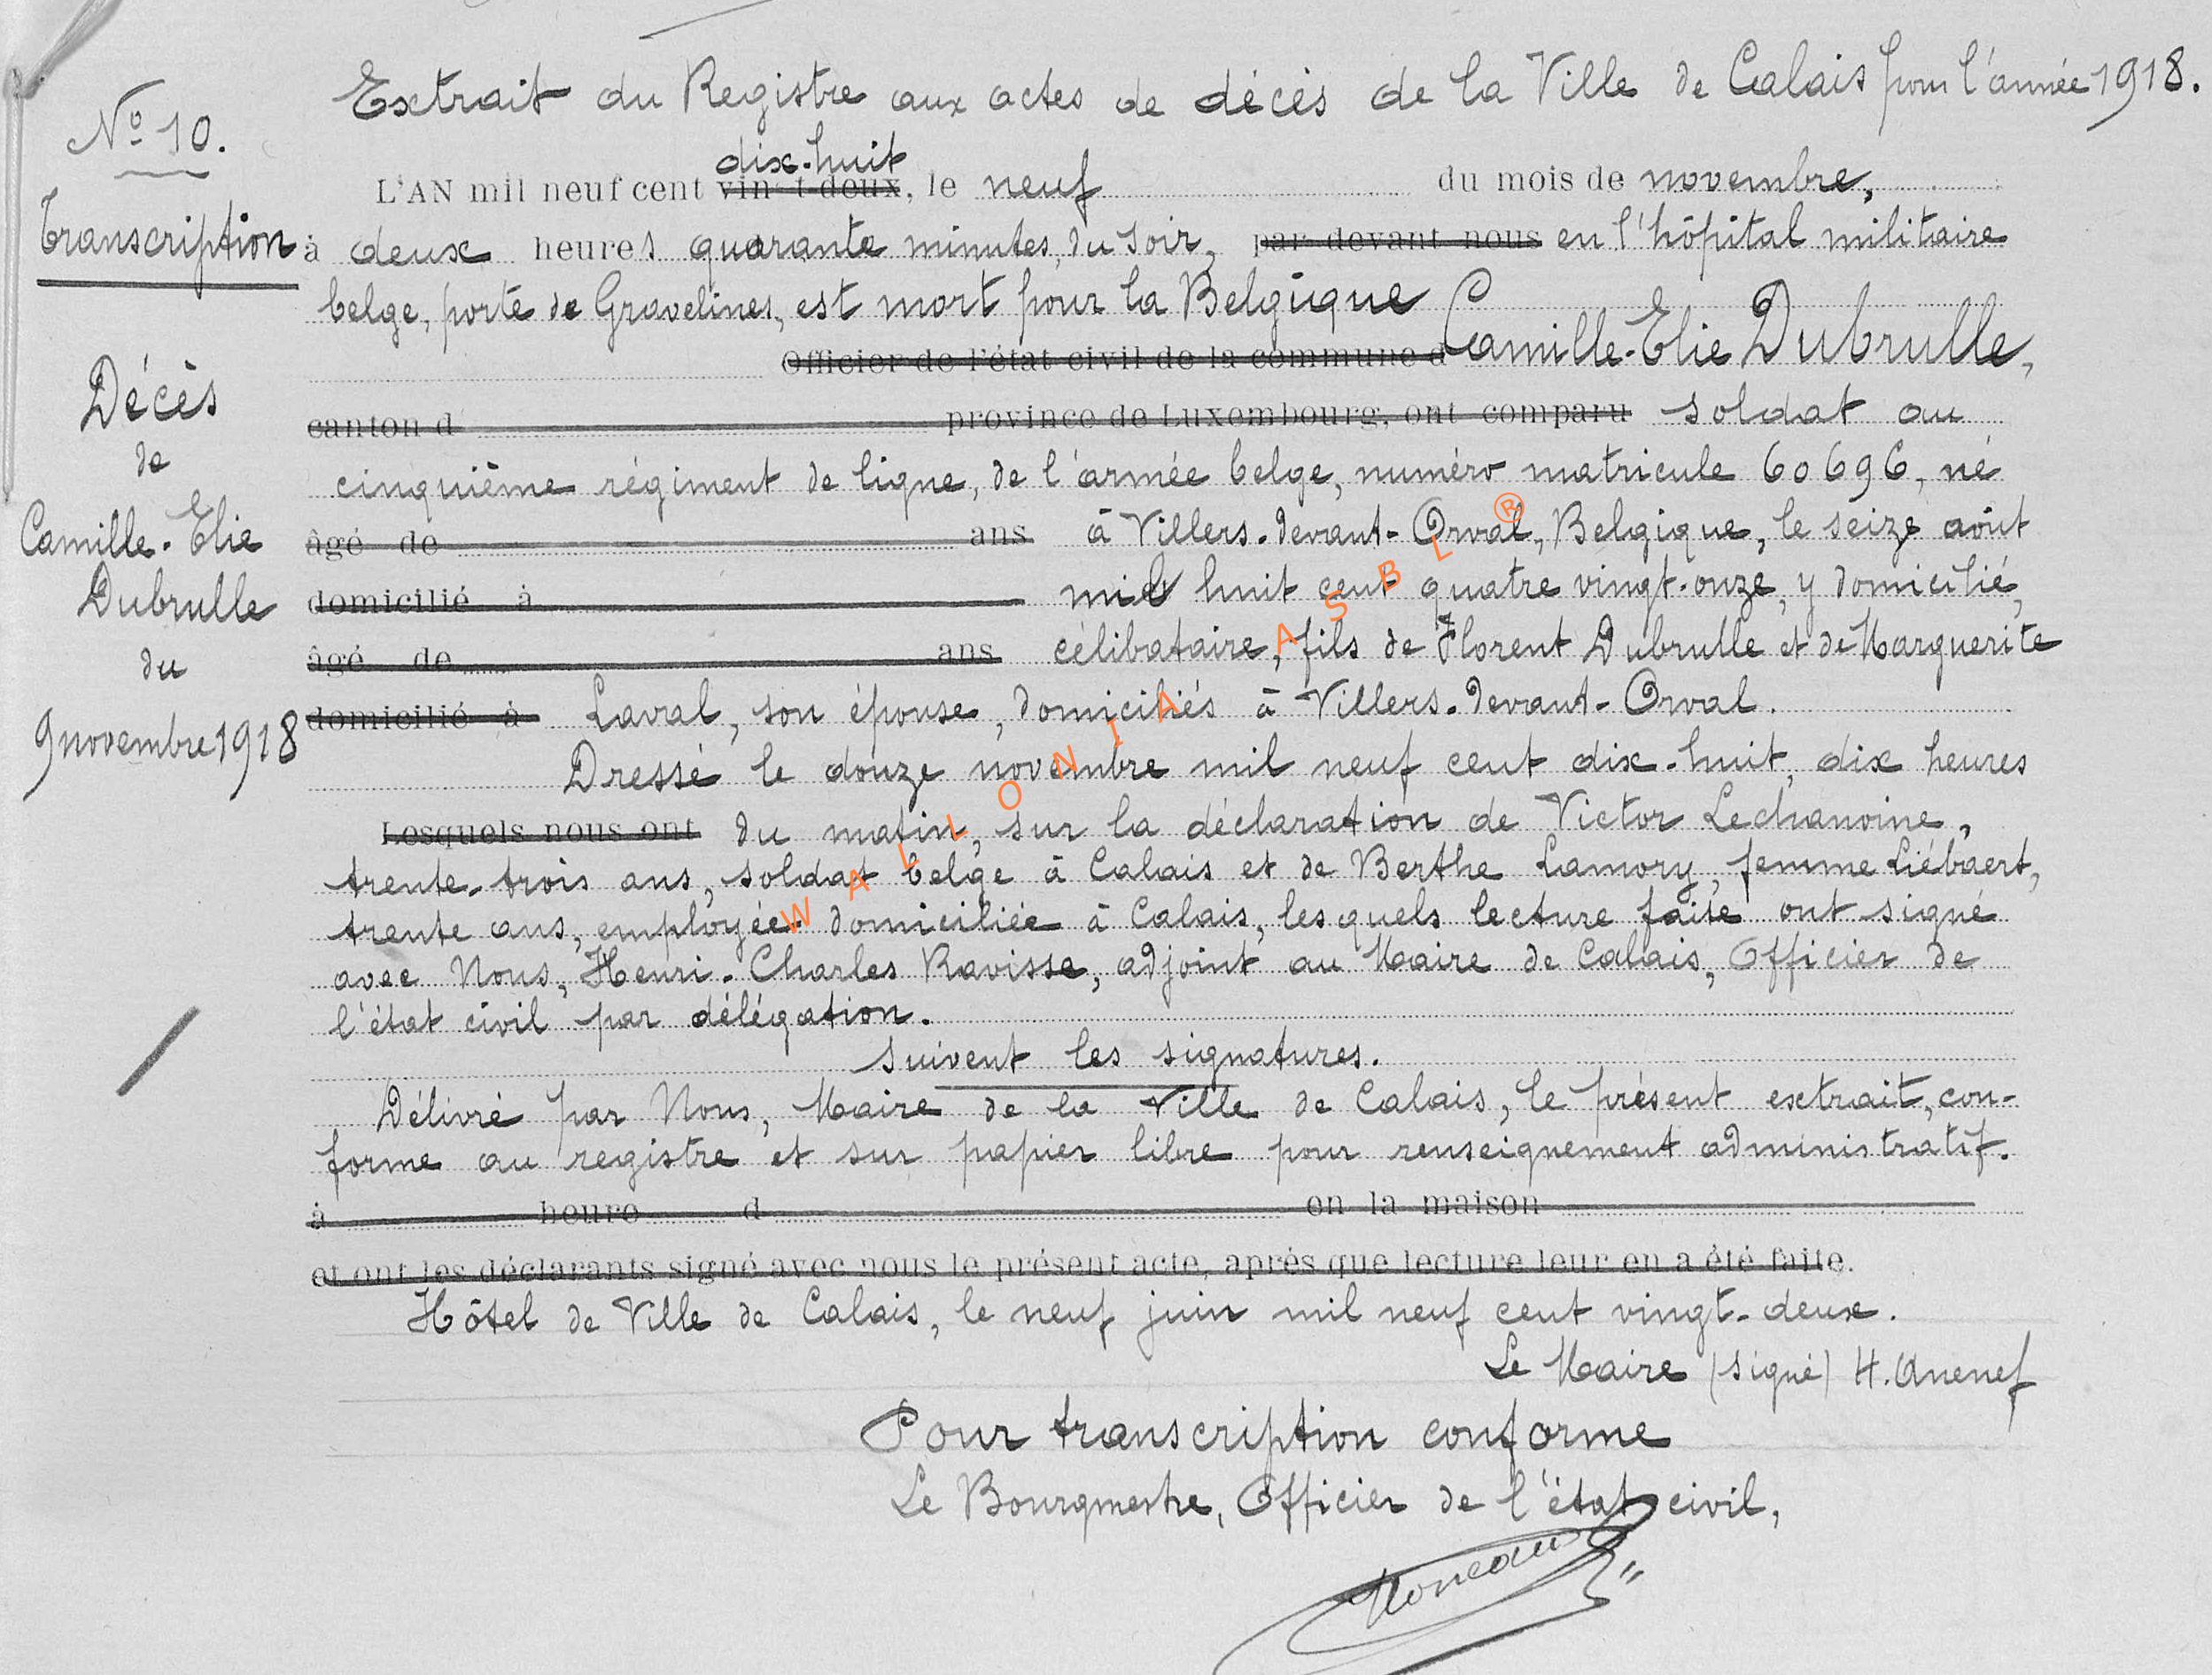 Extrait du Registre aux actes de décès de la Ville de Calais pour l'année 1918.
N° 10.
dix-huit
L'AN mil neuf cent vingt-deux, le neuf du mois de novembre,
Transcription
à deux heures quarante minutes, du soir, par devant nous en l'hôpital militaire
belge, porte de Gravelines, est mort pour la Belgique
Officier de l'état civil de la commune d Camille-Elie Dubrulle,
Décès
de
Camille-Elie
Dubrulle
du
9 novembre 1918
canton d province de Luxembourg, ont comparu soldat au
cinquième régiment de ligne, de l'armée belge, numéro matricule 60696, né
âgé de ans à Villers-devant-Orval, Belgique, le seize août
domicilié à mil huit cent quatre vingt-onze, y domicilié,
âgé de ans célibataire, fils de Florent Dubrulle et de Marguerite
domicilié à Laval, son épouse, domiciliés à Villers-devant-Orval.
Dressé le douze novembre mil neuf cent dix-huit, dix heures
Lesquels nous ont du matin, sur la déclaration de Victor Lechanoine,
trente-trois ans, soldat belge à Calais et de Berthe Lamory, femme Liébaert,
trente ans, employée domiciliée à Calais, lesquels lecture faite ont signé
avec Nous, Henri-Charles Ravisse, adjoint au Maire de Calais, Officier de
l'état civil par délégation.
Suivent les signatures.
Délivré par Nous, Maire de la Ville de Calais, le présent extrait, con-
forme au registre et sur papier libre pour renseignement administratif.
à heure d en la maison
et ont les déclarants signé avec nous le présent acte, après que lecture leur en a été faite.
Hôtel de Ville de Calais, le neuf juin mil neuf cent vingt-deux.
Le Maire (signé) H.
Pour transcription conforme
Le Bourgmestre, Officier de l'état civil,
WALLONIA ASBL ®